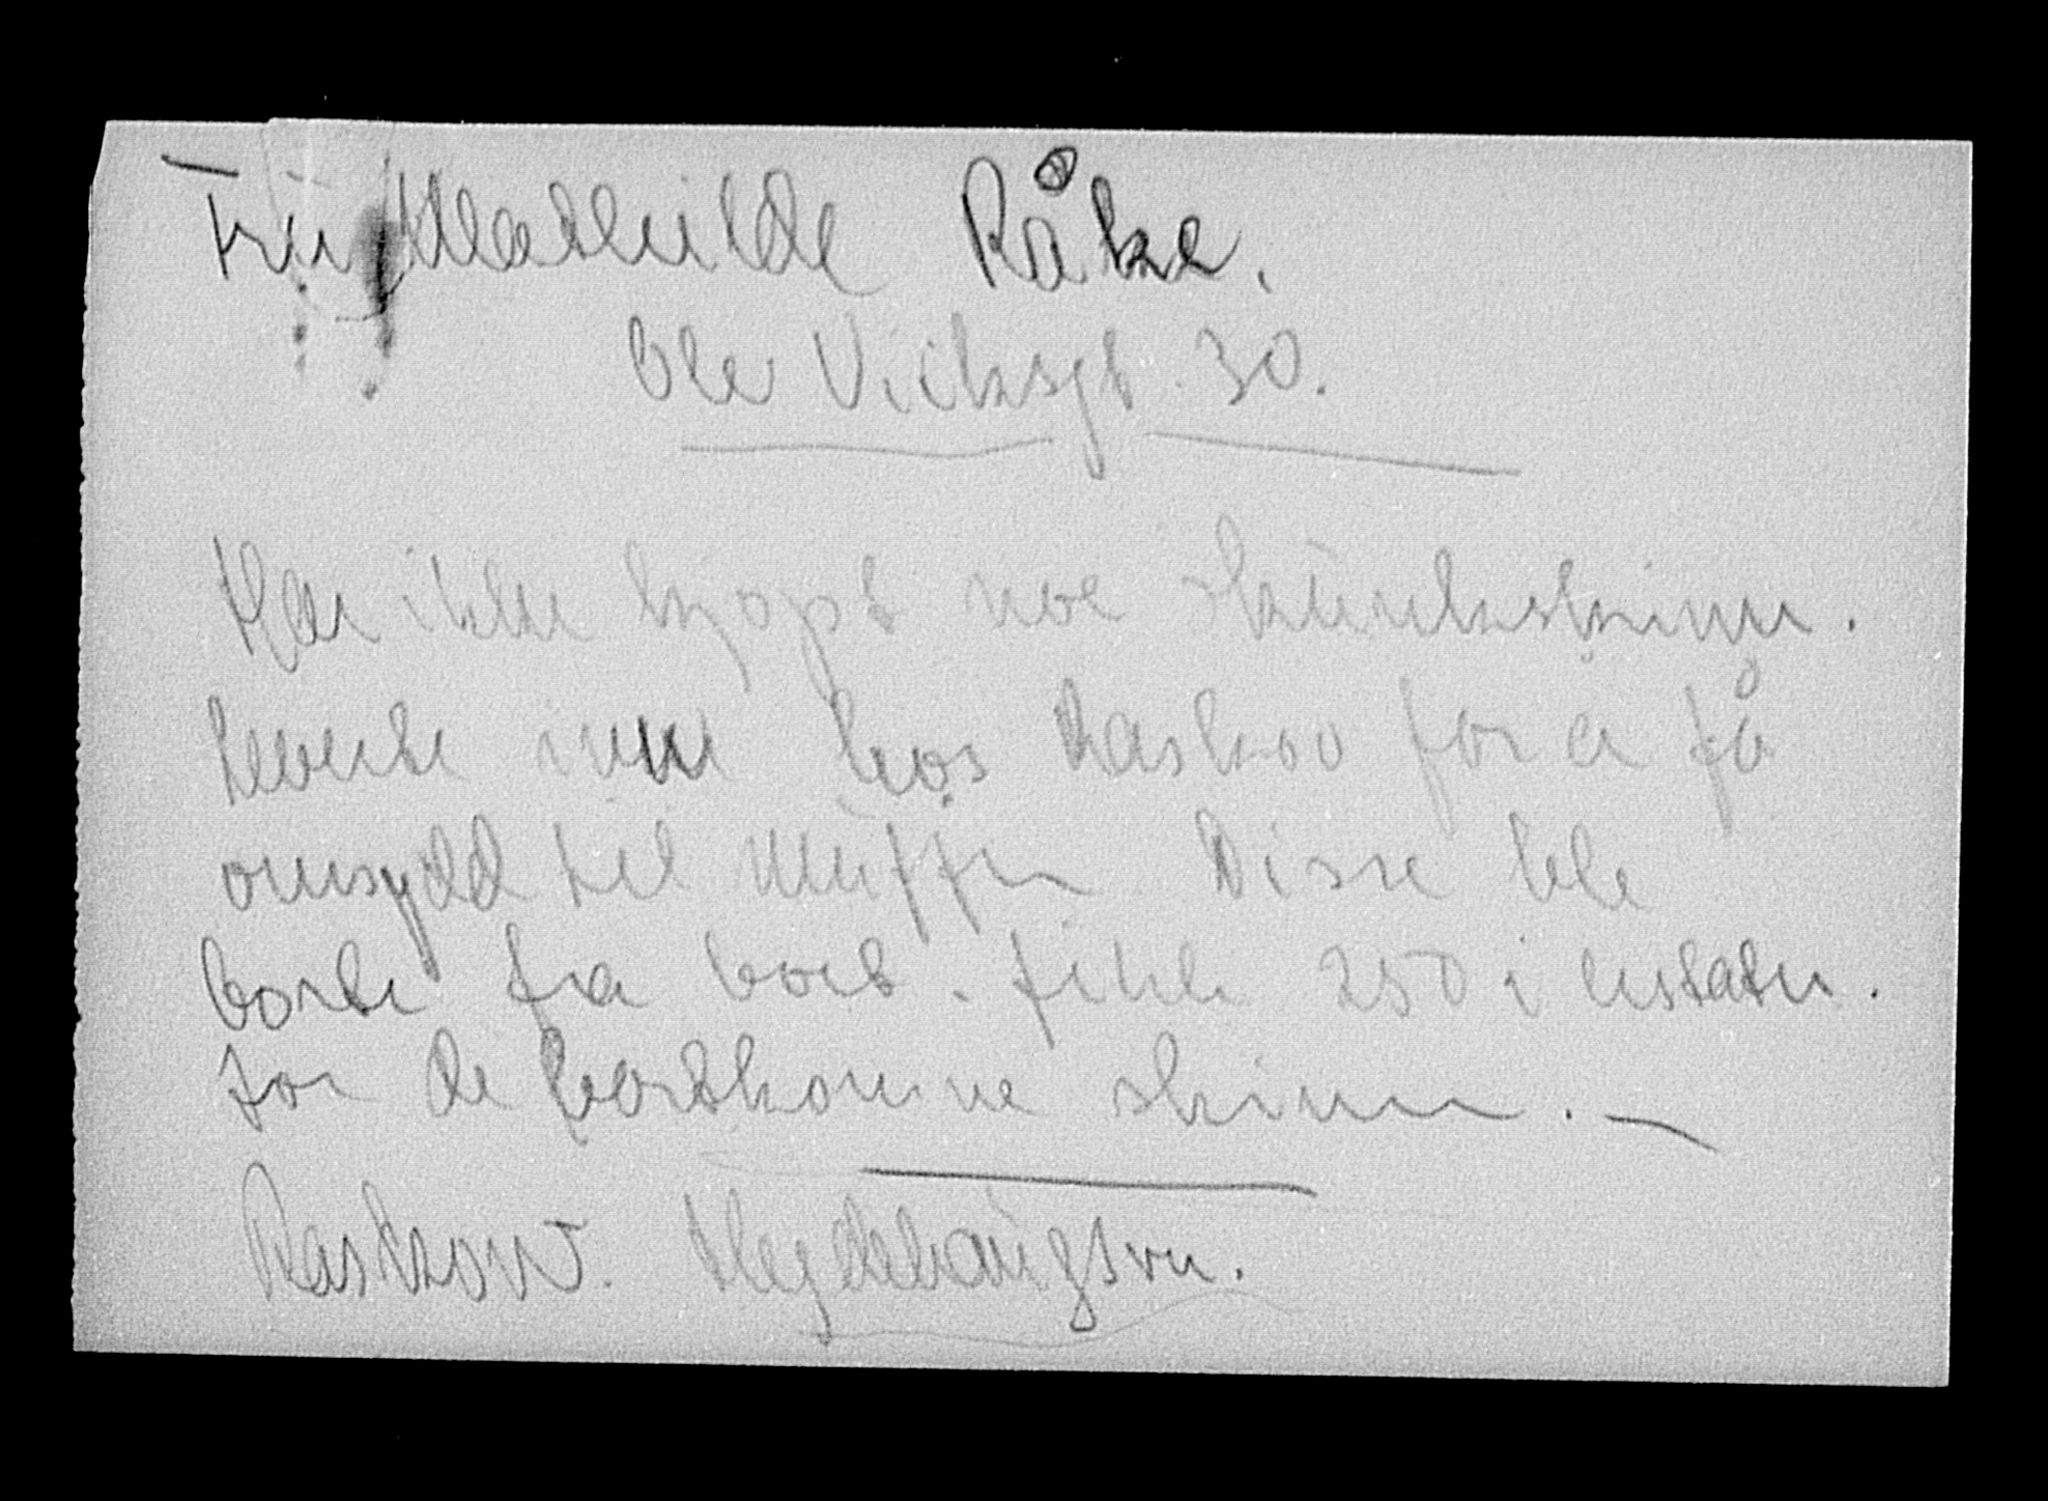 Fru Mathilde Råke.
Ole Vicksgt. 30.
Har ikke kjøpt noe skunkskinn.
Leverte inn hos Raskov for å få
omsydd til muffer Disse ble
borte fra bort. fikk 250 i erstatn.
for de bortkomne skinn. —
Raskow. Hegdehaugsvn.